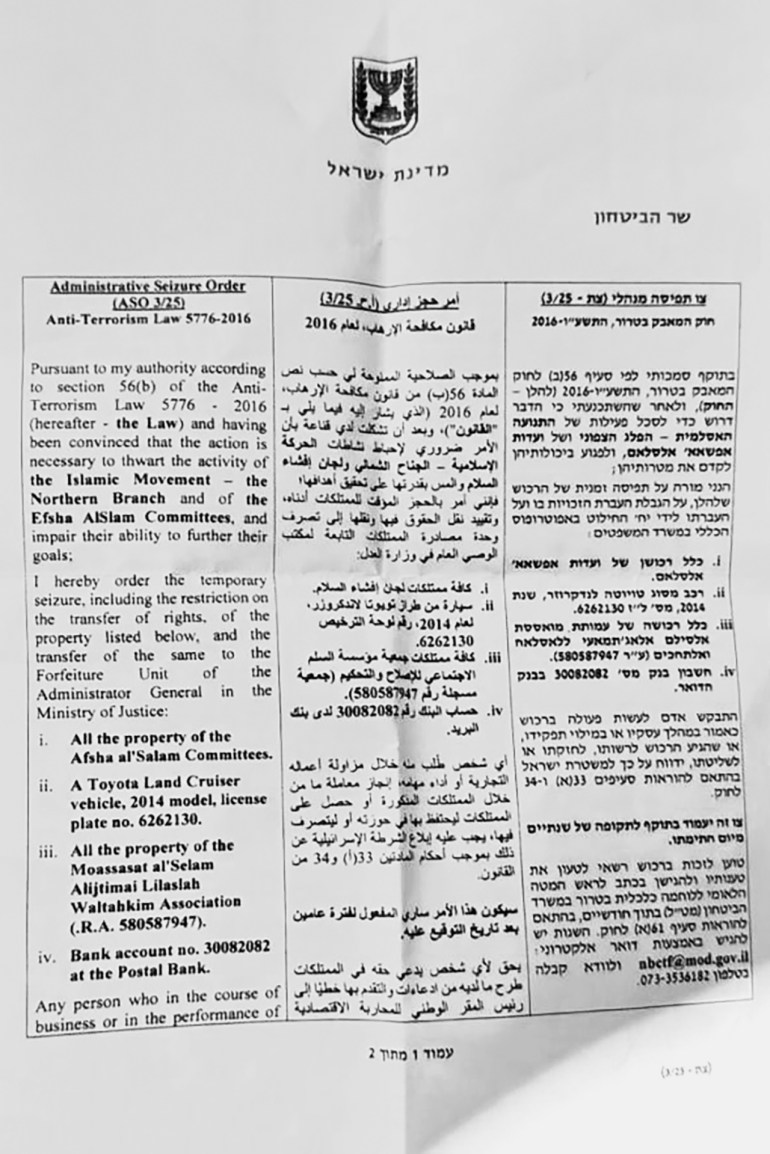 מדינת ישראל
שר הביטחון
Administrative Seizure Order
(ASO 3/25)
Anti-Terrorism Law 5776-2016
Pursuant to my authority according
to section 56(b) of the Anti-
Terrorism Law 5776 - 2016
(hereafter - the Law) and having
been convinced that the action is
necessary to thwart the activity of
the Islamic Movement – the
Northern Branch and of the
Efsha AlSlam Committees, and
impair their ability to further their
goals;
I hereby order the temporary
seizure, including the restriction on
the transfer of rights, of the
property listed below, and the
transfer of the same to the
Forfeiture Unit of the
Administrator General in the
Ministry of Justice:
i. All the property of the
Afsha al'Salam Committees.
ii. A Toyota Land Cruiser
vehicle, 2014 model, license
plate no. 6262130.
iii. All the property of the
Moassasat al'Selam
Alijtimai Lilaslah
Waltahkim Association
(.R.A. 580587947).
iv. Bank account no. 30082082
at the Postal Bank.
Any person who in the course of
business or in the performance of
أمر حجز إداري (أ.ح. 3/25)
قانون مكافحة الإرهاب، لعام 2016
بموجب الصلاحية الممنوحة لي حسب نص
المادة 56(ب) من قانون مكافحة الإرهاب،
لعام 2016 (الذي يشار إليه فيما يلي بـ
"القانون")، وبعد أن تشكلت لدي قناعة بأن
الأمر ضروري لإحباط نشاطات الحركة
الإسلامية – الجناح الشمالي ولجان إفشاء
السلام والمس بقدرتها على تحقيق أهدافها؛
فإنني أمر بالحجز المؤقت للممتلكات أدناه،
وتقييد نقل الحقوق فيها ونقلها إلى تصرف
وحدة مصادرة الممتلكات التابعة لمكتب
الوصي العام في وزارة العدل:
i. كافة ممتلكات لجان إفشاء السلام.
ii. سيارة من طراز تويوتا لاندكروزر،
لعام 2014، رقم لوحة الترخيص
6262130.
iii. كافة ممتلكات جمعية مؤسسة السلم
الاجتماعي للإصلاح والتحكيم (جمعية
مسجلة رقم 580587947).
iv. حساب البنك رقم 30082082 لدى بنك
البريد.
أي شخص طُلب منه خلال مزاولة أعماله
التجارية أو أداء مهامه، إنجاز معاملة ما من
خلال الممتلكات المذكورة أو حصل على
الممتلكات ليحتفظ بها في حوزته أو ليتصرف
فيها، يجب عليه إبلاغ الشرطة الإسرائيلية عن
ذلك بموجب أحكام المادتين 33(أ) و34 من
القانون.
سيكون هذا الأمر ساري المفعول لفترة عامين
بعد تاريخ التوقيع عليه.
يحق لأي شخص يدعي حقه في الممتلكات
طرح ما لديه من ادعاءات والتقدم بها خطيًا إلى
رئيس المقر الوطني للمحاربة الاقتصادية
צו תפיסה מנהלי (צת - 3/25)
חוק המאבק בטרור, התשע"ו-2016
בתוקף סמכותי לפי סעיף 56(ב) לחוק
המאבק בטרור, התשע"ו-2016 (להלן –
החוק), ולאחר שהשתכנעתי כי הדבר
דרוש כדי לסכל פעילות של התנועה
האסלמית – הפלג הצפוני ושל ועדות
אפשאא' אלסלאם, ולפגוע ביכולותיהן
לקדם את מטרותיהן;
הנני מורה על תפיסה זמנית של הרכוש
שלהלן, על הגבלת העברת הזכויות בו ועל
העברתו לידי יח' החילוט באפוטרופוס
הכללי במשרד המשפטים:
i. כלל רכושן של ועדות אפשאא'
אלסלאם.
ii. רכב מסוג טויוטה לנדקרוזר, שנת
2014, מס' ל"ז 6262130.
iii. כלל רכושה של עמותת מואססת
אלסילם אלאג'תמאעי ללאסלאח
ואלתחכים (ע"ר 580587947).
iv. חשבון בנק מס' 30082082 בבנק
הדואר.
התבקש אדם לעשות פעולה ברכוש
כאמור במהלך עסקיו או במילוי תפקידו,
או שהגיע הרכוש לרשותו, לחזקתו או
לשליטתו, ידווח על כך למשטרת ישראל
בהתאם להוראות סעיפים 33(א) ו-34
לחוק.
צו זה יעמוד בתוקף לתקופה של שנתיים
מיום חתימתו.
טוען לזכות ברכוש רשאי לטעון את
טענותיו ולהגישן בכתב לראש המטה
הלאומי ללוחמה כלכלית בטרור במשרד
הביטחון (מטל"ל) בתוך חודשיים, בהתאם
להוראות סעיף 61(א) לחוק. השגות יש
להגיש באמצעות דואר אלקטרוני:
nbctf@mod.gov.il ולוודא קבלה
בטלפון 073-3536182.
עמוד 1 מתוך 2
(צת - 3/25)